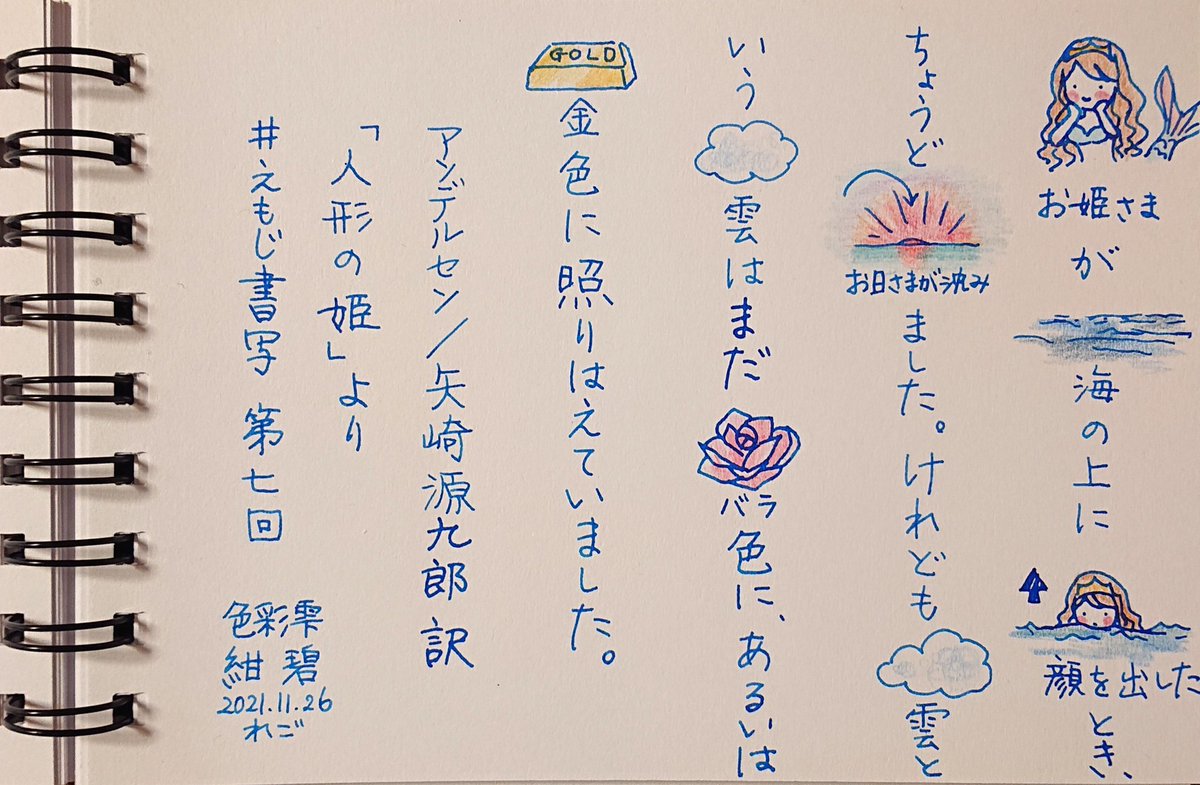 お姫さまが海の上に顔を出したとき、
ちょうどお日さまが沈みました。けれども雲と
いう雲はまだバラ色に、あるいは
GOLD
金色に照りはえていました。
アンデルセン／矢崎源九郎訳
「人形の姫」より
#えもじ書写 第七回
色彩雫
紺碧
2021.11.26
れご